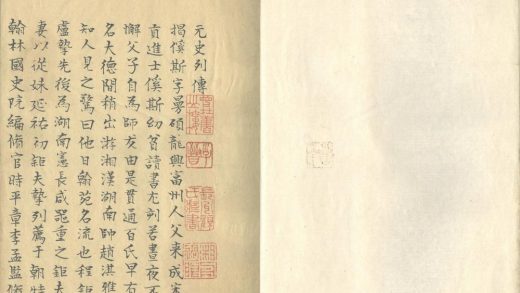 元史列傳
揭傒斯字曼碩龍興富州人父来成宋
貢進士傒斯幼貧讀書尤刻苦晝夜不
懈父子自為師友由是貫通百氏早有
名大德間稍出游湘漢湖南帥趙淇雅
知人見之驚曰他日翰苑名流也程鉅
盧摯先後為湖南憲長咸器重之鉅夫
妻以從妹延祐初鉅夫摯列薦于朝特
翰林國史院編脩官時平章李孟監脩